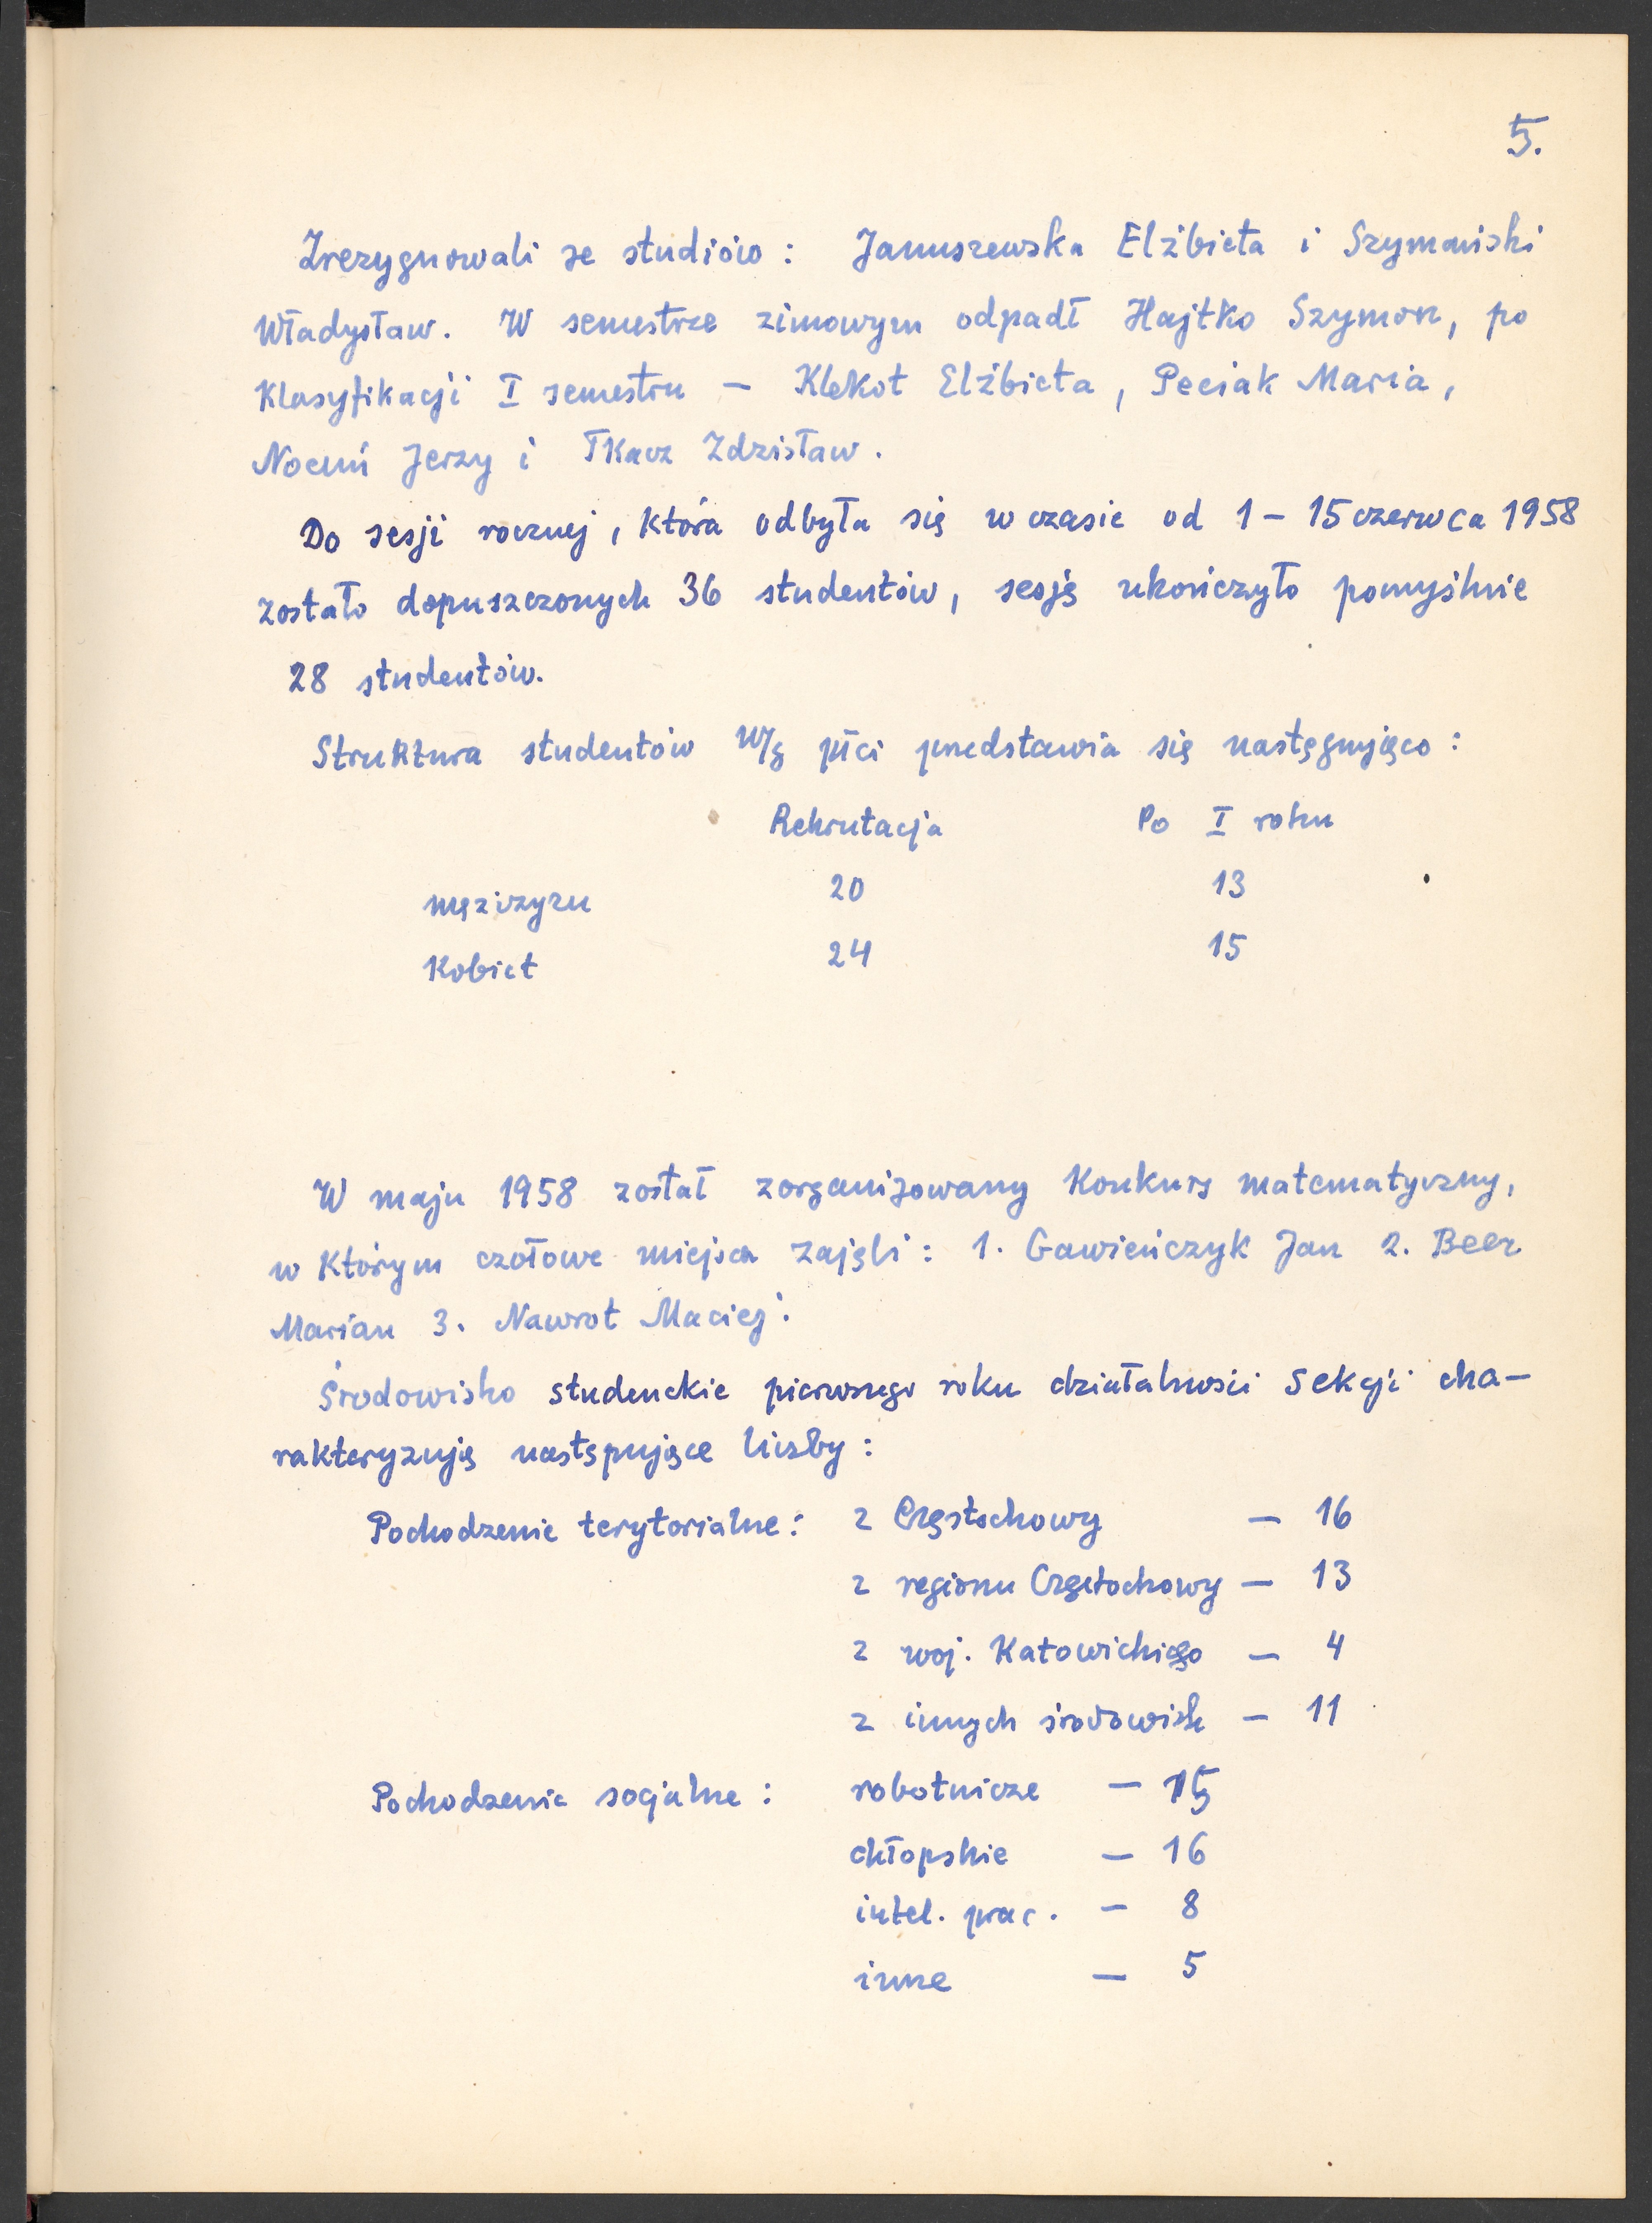 5.
Zrezygnowali ze studiów: Januszewska Elżbieta i Szymański
Władysław. W semestrze zimowym odpadł Hajtko Szymon, po
klasyfikacji I semestru – Klekot Elżbieta, Peciak Maria,
Nocuń Jerzy i Tkacz Zdzisław.
Do sesji rocznej, która odbyła się w czasie od 1 – 15 czerwca 1958
zostało dopuszczonych 36 studentów, sesję ukończyło pomyślnie
28 studentów.
Struktura studentów w/g płci przedstawia się następująco:
Rekrutacja Po I roku
mężczyzn 20 13
Kobiet 24 15
W maju 1958 został zorganizowany Konkurs matematyczny,
w którym czołowe miejsca zajęli: 1. Gawieńczyk Jan 2. Beer
Marian 3. Nawrot Maciej.
Środowisko studenckie pierwszego roku działalności Sekcji cha–
rakteryzują następujące liczby:
Pochodzenie terytorialne: z Częstochowy – 16
z regionu Częstochowy – 13
z woj. Katowickiego – 4
z innych środowisk – 11
Pochodzenie socjalne: robotnicze – 15
chłopskie – 16
intel. prac. – 8
inne – 5